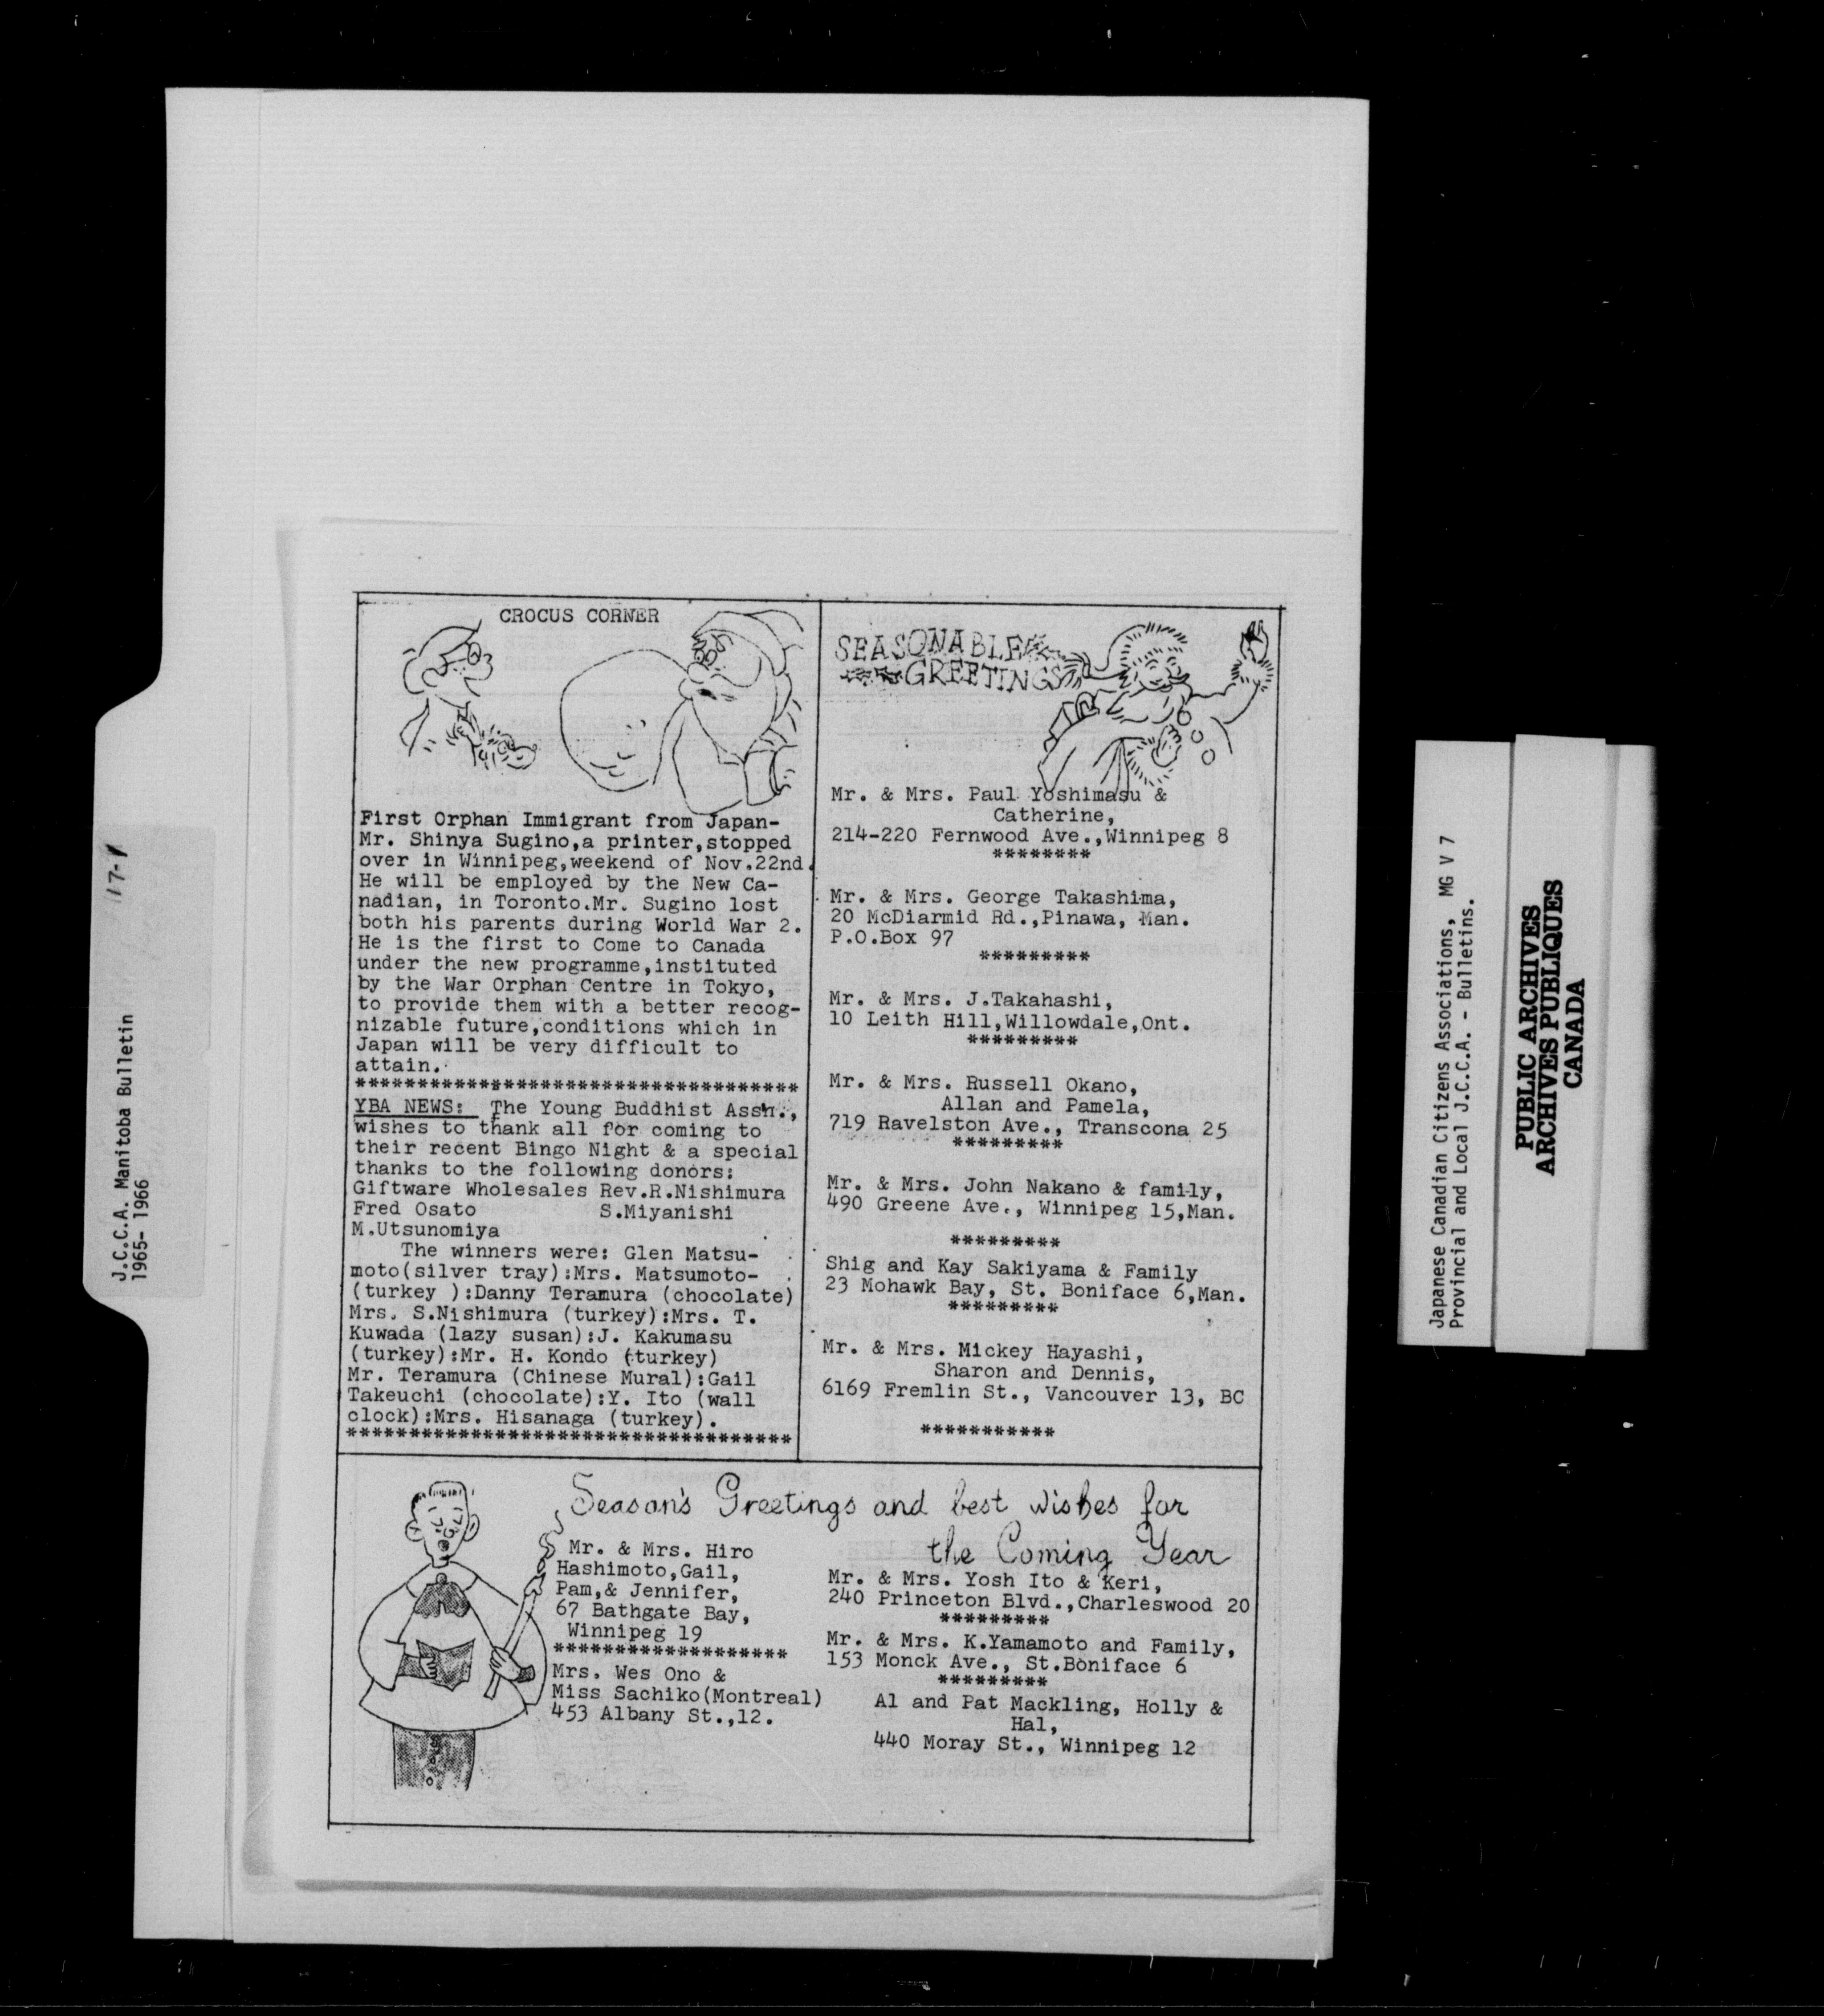 CROCUS CORNER
First Orphan Immigrant from Japan-
Mr. Shinya Sugino,a printer,stopped
over in Winnipeg,weekend of Nov.22nd.
He will be employed by the New Ca-
nadian, in Toronto.Mr. Sugino lost
both his parents during World War 2.
He is the first to Come to Canada
under the new programme,instituted
by the War Orphan Centre in Tokyo,
to provide them with a better recog-
nizable future,conditions which in
Japan will be very difficult to
attain.
************************************
YBA NEWS: The Young Buddhist Assn.,
wishes to thank all for coming to
their recent Bingo Night & a special
thanks to the following donors:
Giftware Wholesales Rev.R.Nishimura
Fred Osato S.Miyanishi
M.Utsunomiya
The winners were: Glen Matsu-
moto(silver tray):Mrs. Matsumoto-
(turkey ):Danny Teramura (chocolate)
Mrs. S.Nishimura (turkey):Mrs. T.
Kuwada (lazy susan):J. Kakumasu
(turkey):Mr. H. Kondo (turkey)
Mr. Teramura (Chinese Mural):Gail
Takeuchi (chocolate):Y. Ito (wall
clock):Mrs. Hisanaga (turkey).
************************************
SEASONABLE
GREETINGS
Mr. & Mrs. Paul Yoshimasu &
Catherine,
214-220 Fernwood Ave.,Winnipeg 8
********
Mr. & Mrs. George Takashima,
20 McDiarmid Rd.,Pinawa, Man.
P.O.Box 97
*********
Mr. & Mrs. J.Takahashi,
10 Leith Hill,Willowdale,Ont.
*********
Mr. & Mrs. Russell Okano,
Allan and Pamela,
719 Ravelston Ave., Transcona 25
*********
Mr. & Mrs. John Nakano & family,
490 Greene Ave., Winnipeg 15,Man.
*********
Shig and Kay Sakiyama & Family
23 Mohawk Bay, St. Boniface 6,Man.
*********
Mr. & Mrs. Mickey Hayashi,
Sharon and Dennis,
6169 Fremlin St., Vancouver 13, BC
***********
Season's Greetings and best wishes for
the Coming Year
Mr. & Mrs. Hiro
Hashimoto,Gail,
Pam,& Jennifer,
67 Bathgate Bay,
Winnipeg 19
*******************
Mrs. Wes Ono &
Miss Sachiko(Montreal)
453 Albany St.,12.
Mr. & Mrs. Yosh Ito & Keri,
240 Princeton Blvd.,Charleswood 20
*********
Mr. & Mrs. K.Yamamoto and Family,
153 Monck Ave., St.Boniface 6
*********
Al and Pat Mackling, Holly &
Hal,
440 Moray St., Winnipeg 12
J.C.C.A. Manitoba Bulletin 17-1
1965-1966
Japanese Canadian Citizens Associations, MG V 7
Provincial and Local J.C.C.A. - Bulletins.
PUBLIC ARCHIVES
ARCHIVES PUBLIQUES
CANADA